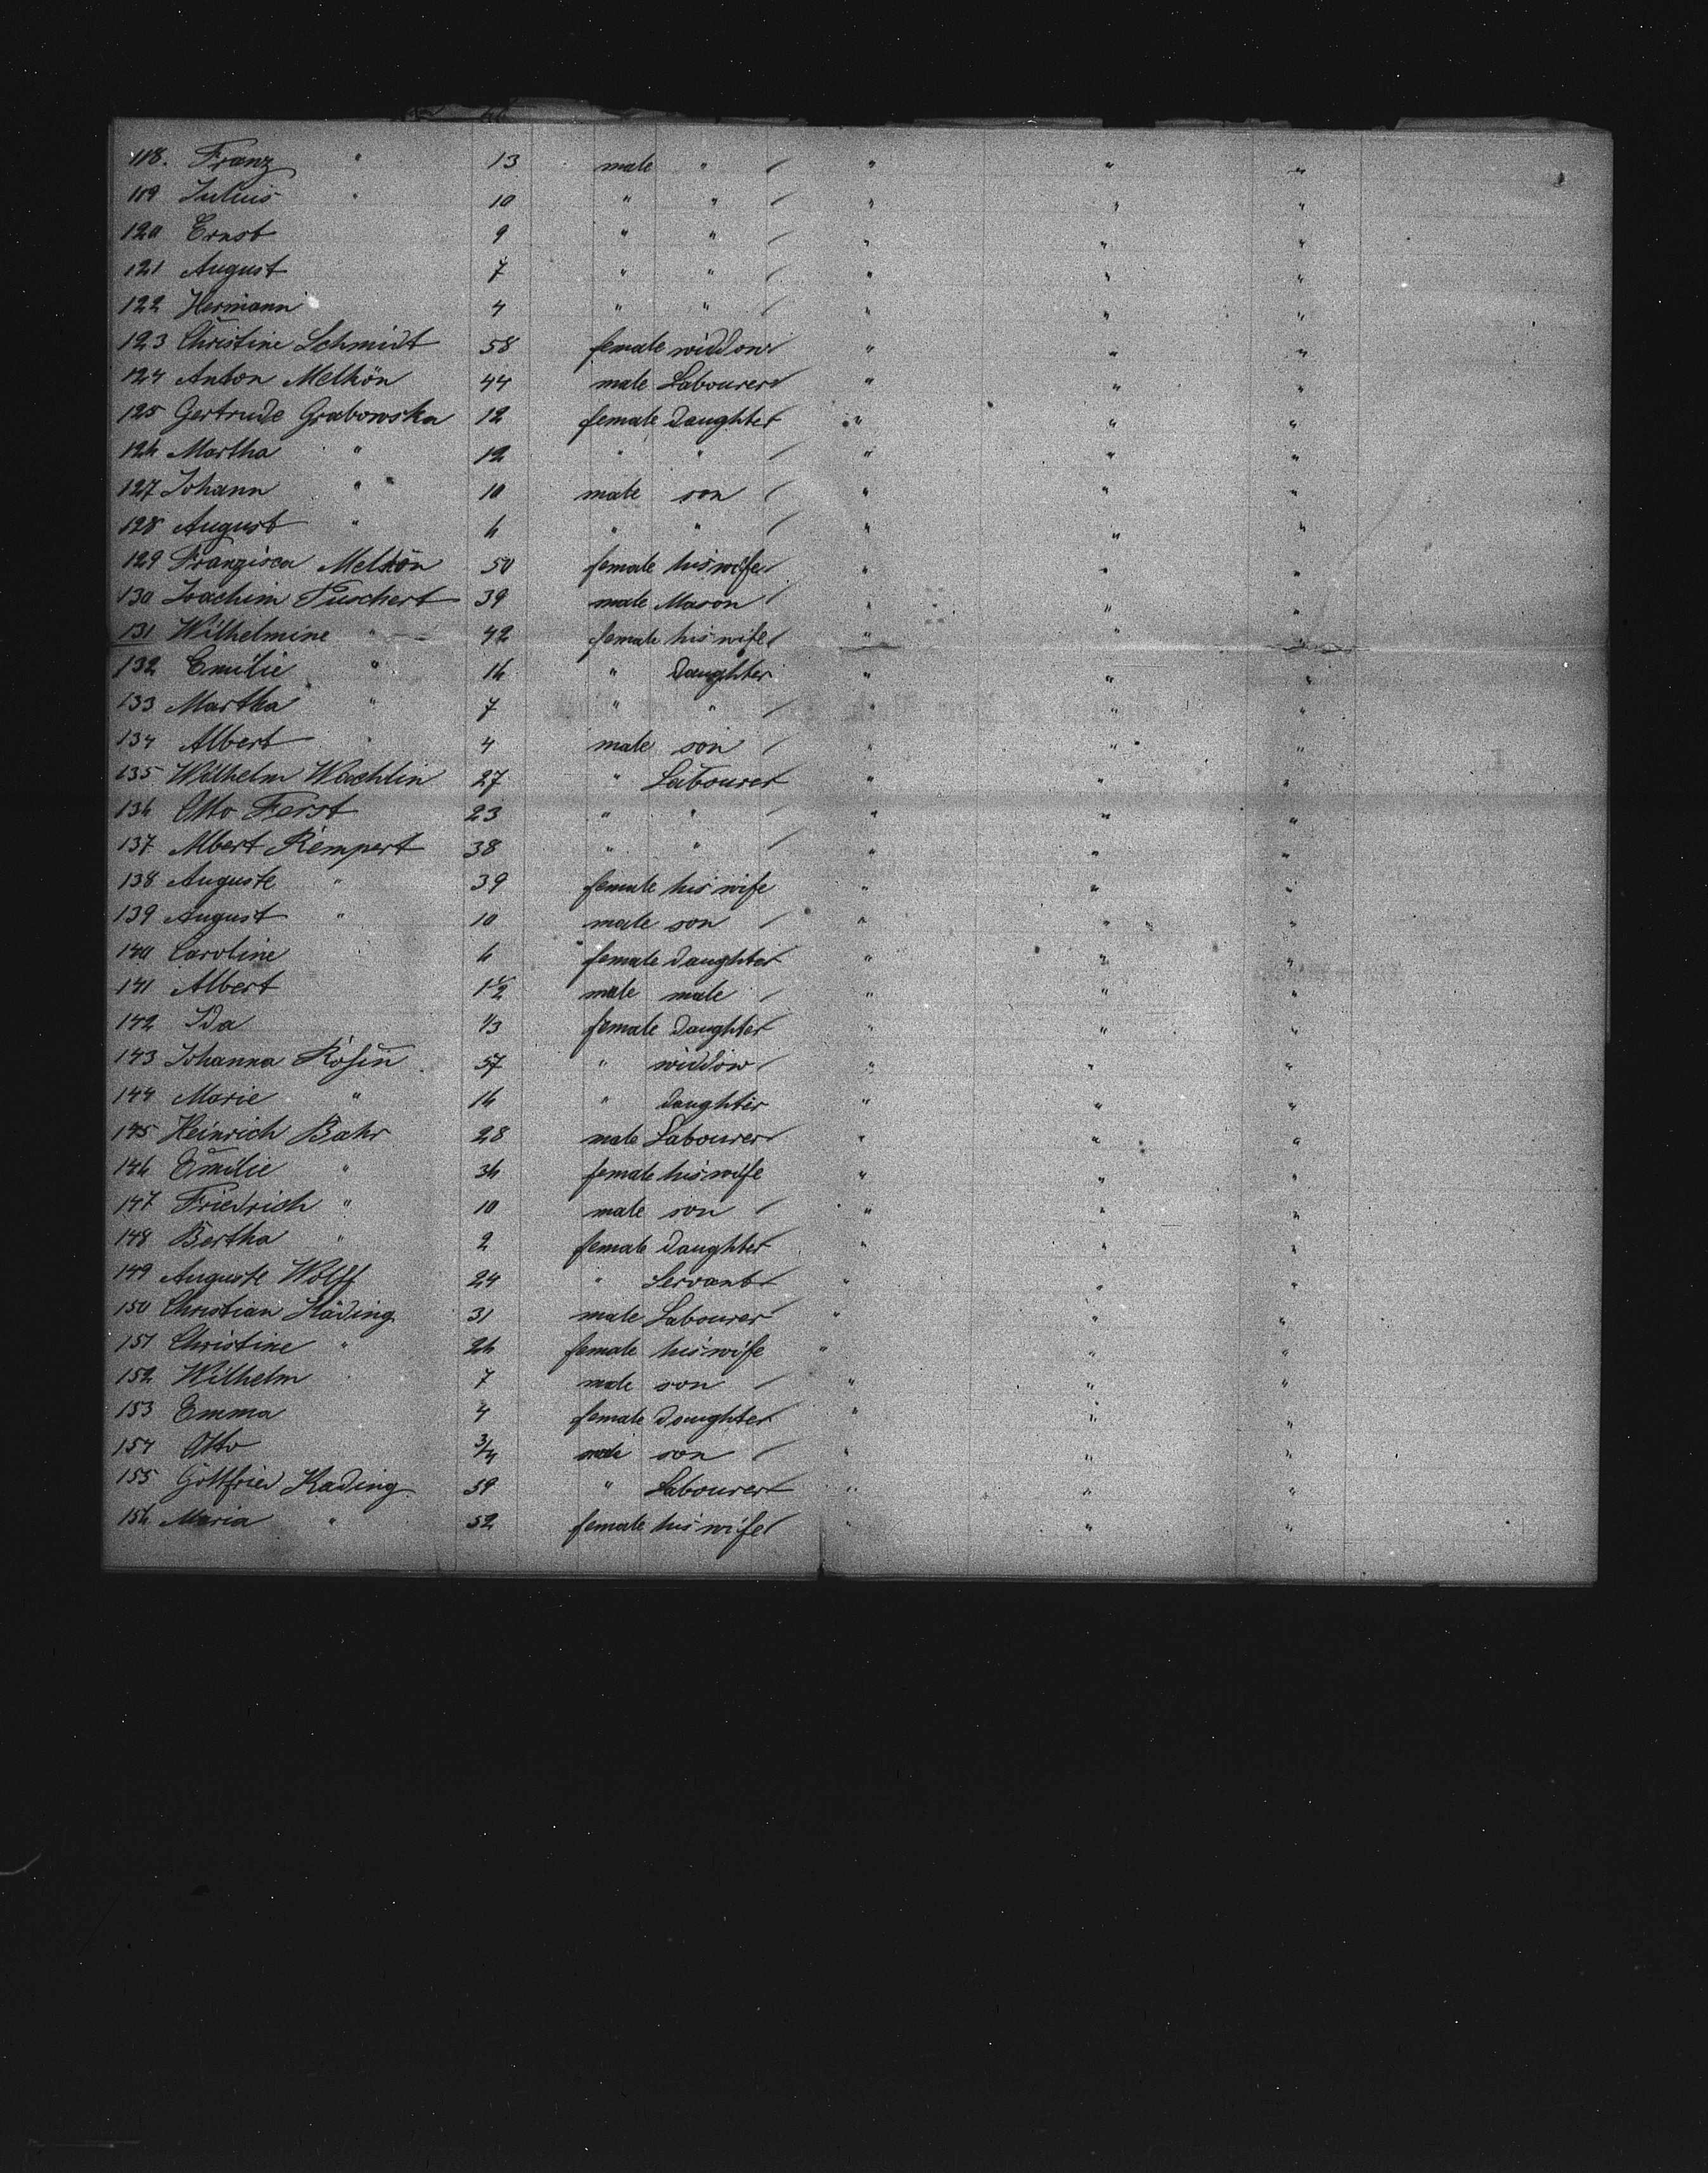 118. Franz " 13 male " " " "
119 Julius " 10 " " " " "
120 Ernst 9 " " " " "
121 August 7 " " " " "
122 Hermann 4 " " " " "
123 Christine Schmidt 58 female widdow " " "
124 Anton Melkön 44 male Labourer " " "
125 Gertrude Grabowska 12 female daughter " " "
126 Martha " 12 " " " " "
127 Johann " 10 male son " " "
128 August " 6 " " " " "
129 Franzisca Melkön 50 female his wife " " "
130 Joachim Tuschert 39 male Mason " " "
131 Wilhelmine " 42 female his wife " " "
132 Emilie " 16 " daughter " " "
133 Martha " 7 " " " " "
134 Albert " 4 male son " " "
135 Wilhelm Wachlin 27 " Labourer " " "
136 Otto Ferst 23 " " " " "
137 Albert Rempert 38 " " " " "
138 Auguste " 39 female his wife " " "
139 August " 10 male son " " "
140 Caroline 6 female daughter " " "
141 Albert 1 1/2 male male " " "
142 Ida 1/3 female daughter " " "
143 Johanna Rosin 57 " widdow " " "
144 Marie " 16 " daughter " " "
145 Heinrich Bahr 28 male Labourer " " "
146 Emilie " 36 female his wife " " "
147 Friedrich " 10 male son " " "
148 Bertha " 2 female daughter " " "
149 Auguste Wolff 24 " Servant " " "
150 Christian Käding 31 male Labourer " " "
151 Christine " 26 female his wife " " "
152 Wilhelm 7 male son " " "
153 Emma 4 female daughter " " "
154 Otto 3/4 male son " " "
155 Gottfried Kading 59 " Labourer " " "
156 Maria " 52 female his wife " " "